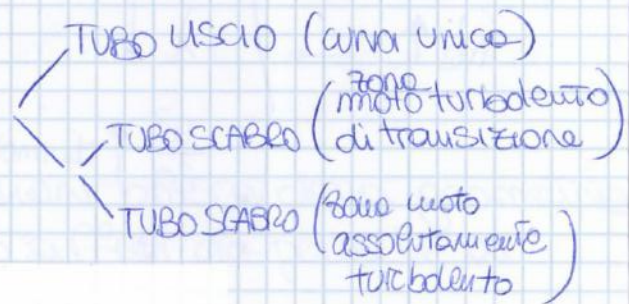 TUBO LISCIO (curva unica)
TUBO SCABRO (zona moto turbolento di transizione)
TUBO SCABRO (zona moto assolutamente turbolento)